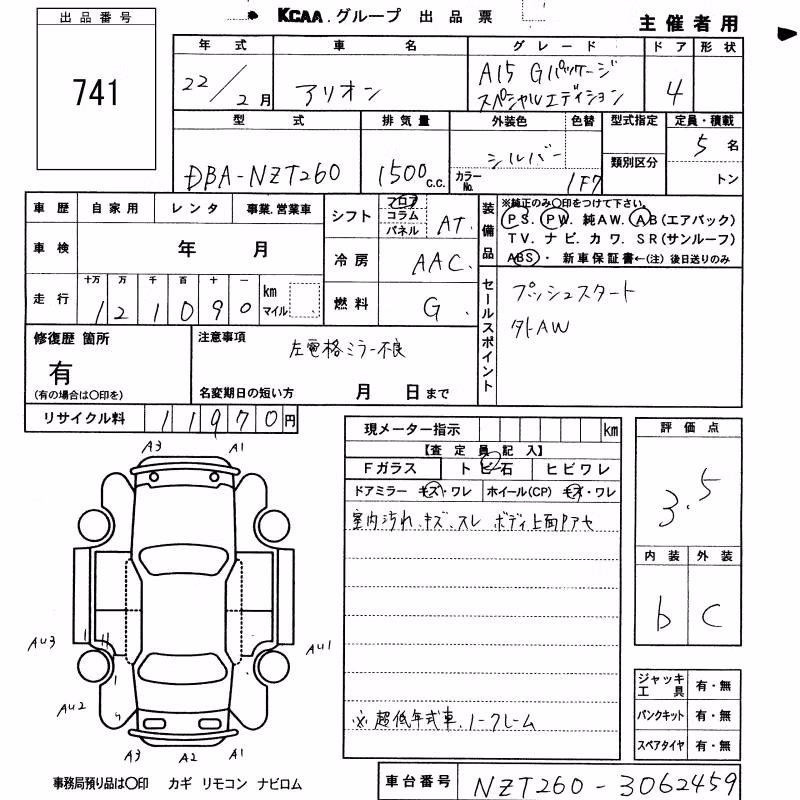 出品番号
741
KCAA.グループ 出品票
主催者用
年式 車名 グレード ドア 形状
22/2月 アリオン A15 Gパッケージ スペシャルエディション 4
型式 排気量 外装色 色替 型式指定 定員・積載
DBA-NZT260 1500 c.c. シルバー カラーNo. 1F7 類別区分 5名
トン
車歴 自家用 レンタ 事業.営業車
車検 年 月
走行 十万 万 千 百 十 一
121090 km マイル
シフト フロア コラム パネル AT.
冷房 AAC.
燃料 G.
装備品 ※純正のみ○印をつけて下さい。
PS. PW. 純AW. AB(エアバック)
TV. ナビ. カワ. SR(サンルーフ)
ABS・新車保証書←(注)後日送りのみ
セールスポイント
プッシュスタート
外AW
修復歴 箇所
有
(有の場合は○印を)
注意事項
左電格ミラー不良
名変期日の短い方 月 日まで
リサイクル料 11970円
現メーター指示 km
【査定員記入】
Fガラス トビ石 ヒビワレ
ドアミラー キズ・ワレ ホイール(CP) キズ・ワレ
室内汚れ、キズ、スレ ボディ上面Pアセ
※超低年式車、ノークレーム
評価点
3.5
内装 外装
b C
ジャッキ工具 有・無
パンクキット 有・無
スペアタイヤ 有・無
A3 A1
AU3 AU1
AU2
A3 A2 A1
事務局預り品は○印 カギ リモコン ナビロム
車台番号 NZT260-3062459